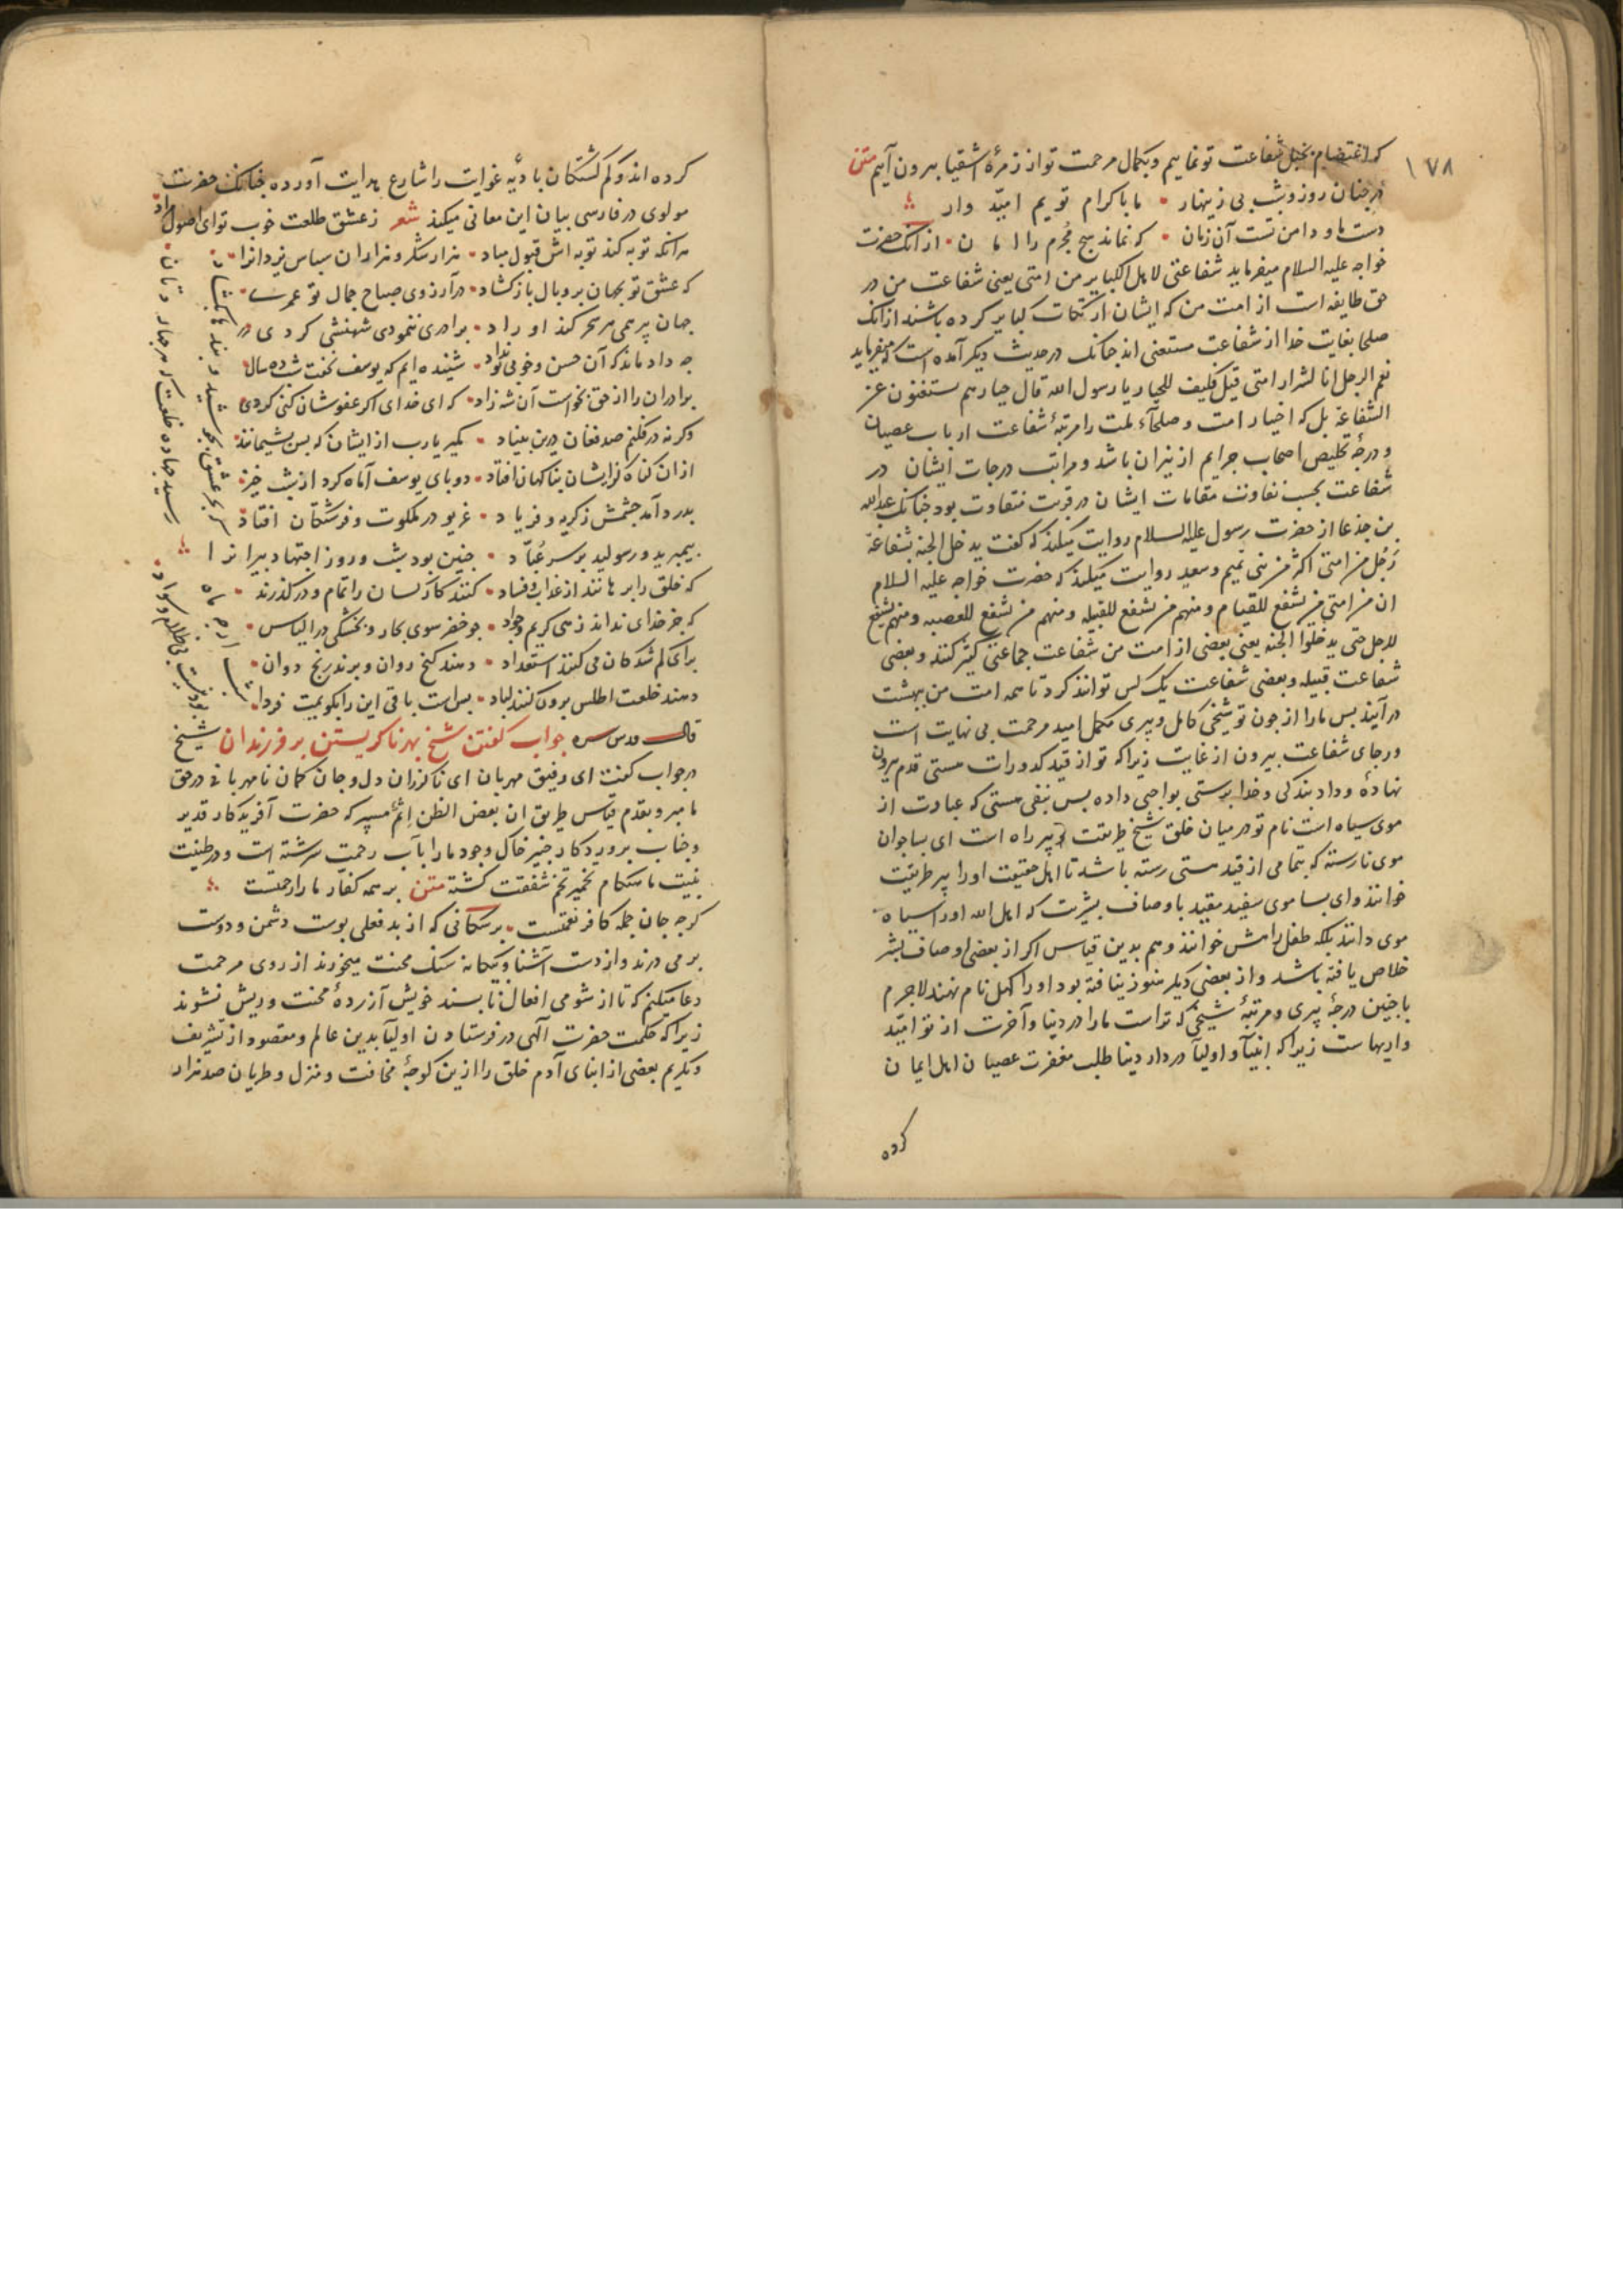 ۱۷۸
که اعتصام بحبل شفاعت تو نماییم و بکمال مرحمت تو از زمرهٔ اشقیا بیرون آییم متن
در جنان روز و شب بی زینهار ما باکرام تو یم امیّد وار
دست ما و دامن تست آن زمان که نماند هیچ مُجرم را امان از انک حضرت
خواجه علیه السلام میفرماید شفاعتی لاهل الکبایر من امتی یعنی شفاعت من در
حق طایفه است از امت من که ایشان ارتکاب کبایر کرده باشند از انک
صلحا بغایت خدا از شفاعت مستغنی اند جنانک در حدیث دیکر آمده است که میفرماید
نعم الرجل انا لشرار امتی قیل فکیف للخیار یا رسول الله قال خیارهم مستغنون عن
الشفاعة بل که اخیار امت و صلحآء ملت را مرتبهٔ شفاعت ارباب عصیان
و درجهٔ تخلیص اصحاب جرایم از نیزان باشد و مراتب درجات ایشان در
شفاعت بحسب تفاوت مقامات ایشان در قربت متفاوت بود جنانک عبدالله
بن جذعا از حضرت رسول علیه السلام روایت میکند که کفت یدخل الجنه بشفاعة
رَجُل من امتی اکثر من بنی تمیم و سعید روایت میکند که حضرت خواجه علیه السلام
ان من امتی من یشفع للقیام و منهم من یشفع للقبیله و منهم من یشفع للعصبه و منهم یشفع
للرجل حتی یدخلوا الجنه یعنی بعضی از امت من شفاعت جماعتی کثیر کنند و بعضی
شفاعت قبیله و بعضی شفاعت یک کس توانند کرد تا همه امت من ببهشت
در آیند بس ما را از جون تو شیخی کامل و پیری مکمل امید مرحمت بی نهایت است
و رجای شفاعت بیرون از غایت زیراکه تو از قید کدورات هستی قدم بیرون
نهادهٔ و داد بندکی و خدا پرستی بواجبی داده بس بنفی هستی که عبارت از
موی سیاه است نام تو در میان خلق شیخ طریقت و پیر راه است ای بسا جوان
موی نارسته که بتمامی از قید هستی رسته باشد تا اهل حقیقت او را پیر طریقت
خوانند و ای بسا موی سفید مقید باوصاف بشریت که اهل الله او را سیاه
موی دانند بلکه طفل راهش خوانند و هم بدین قیاس اکر از بعضی اوصاف بشر
خلاص یافته باشد و از بعضی دیکر هنوز نیافته بود او را کهل نام نهند لاجرم
با جنین درجهٔ پیری و مرتبهٔ شیخی که تراست ما را در دنیا و آخرت از تو امیّد
واریهاست زیراکه انبیآ و اولیآ در دار دنیا طلب مغفرت عصیان اهل ایمان
کرده
کرده اند و کم کشتکان بادیه غوایت را شارع هدایت آورده جنانک حضرت
مولوی در فارسی بیان این معانی میکند شعر ز عشق طلعت خوب تو ای اصول مراد
هر آنکه توبه کند توبه اش قبول مباد هزار شکر و هزاران سباس یزدانرا
که عشق تو بجهان بر و بال باز کشاد در آرزوی صباح جمال تو عمریست
جهان پر همی هر سحر کند او را د برادری ننمودی شهنشهی کردی
جه داد ماند که آن حسن و خوبی تو نداد شنیده ایم که یوسف نخفت شب ده سال
برادران را از حق بخواست آن شه زاد که ای خدای اکر عفوشان کنی کردی
وکرنه در فکنم صد فغان درین بنیاد مکیر یا رب از ایشان که بس بشیمانند
از ان کناه کز ایشان بناکهان افتاد دو پای یوسف آماه کرد از شب خیز
بدرد آمد جشمش ز کریه و فریاد غریو در ملکوت و فرشتکان افتاد
بیمبرید و رسولید بر سر عُبّاد جنین بود شب و روز اجتهاد پیرانرا
که خلق را برهانند از عذاب و فساد کنند کار کسان را تمام و در کذرند
که جز خدای نداند زهی کریم و جواد جو خضر سوی بحار و بخشکی در الیاس
برای کم شدکان می کنند استعداد دهند کنج روان و برند رنج دوان
دهند خلعت اطلس برون کنند لباد بس است باقی این را بکویمت فردا
قال قدس سره جواب کفتن شیخ بهر نا کریستن بر فرزندان شیخ
در جواب کفت ای رفیق مهربان ای ناکزران دل و جان کمان نامهربانی در حق
ما مبر و بقدم قیاس طریق ان بعض الظن اثم مسپر که حضرت آفریدکار قدیر
و جناب پروردکار خبیر خاک وجود ما را بآب رحمت سرشته است و در طینت
بر همه کفار ما را رحمتست
کرجه جان جمله کافر نعمتست بر سکانی که از بد فعلی پوست دشمن و دوست
بر می درند و از دست آشنا و بیکانه سنک محنت میخورند از روی مرحمت
دعا میکنم که تا از شومی افعال نابسند خویش آزردهٔ محنت و ریش نشوند
زیراکه حکمت حضرت آلهی در فرستادن اولیآ بدین عالم و مقصود از تشریف
و تکریم بعضی از ابنای آدم خلق را ازین کوجهٔ مخافت و منزل و طریان صد هزار